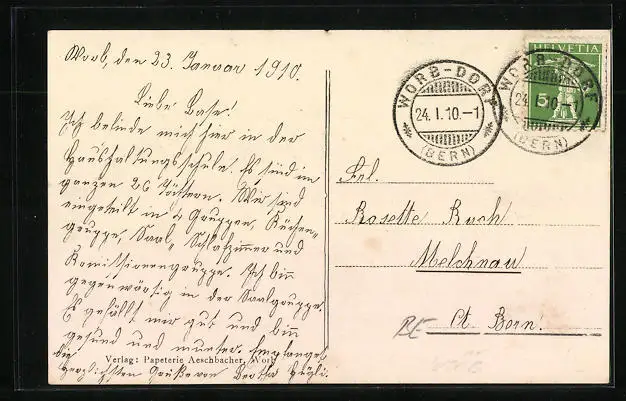 Worb, den 23. Januar 1910.
Liebe Base!
Ich befinde mich hier in der
Haushaltungsschule. Es sind im
ganzen 26 Töchtern. Wir sind
eingeteilt in 4 Gruppen, Küchen=
gruppe, Saal= Schlafzimmer und
Komissionengruppe. Ich bin
gegenwärtig in der Saalgruppe.
Es gefällt mir gut und bin
gesund und munter. Empfanget
die
herzlichsten Grüße von Bertha
Verlag: Papeterie Aeschbacher, Worb
WORB-DORF
24.I.10.-1
(BERN)
HELVETIA
5
WORB-DORF
24.I.10.-1
(BERN)
Frl.
Rosette Ruch
Melchnau
Ct. Bern.